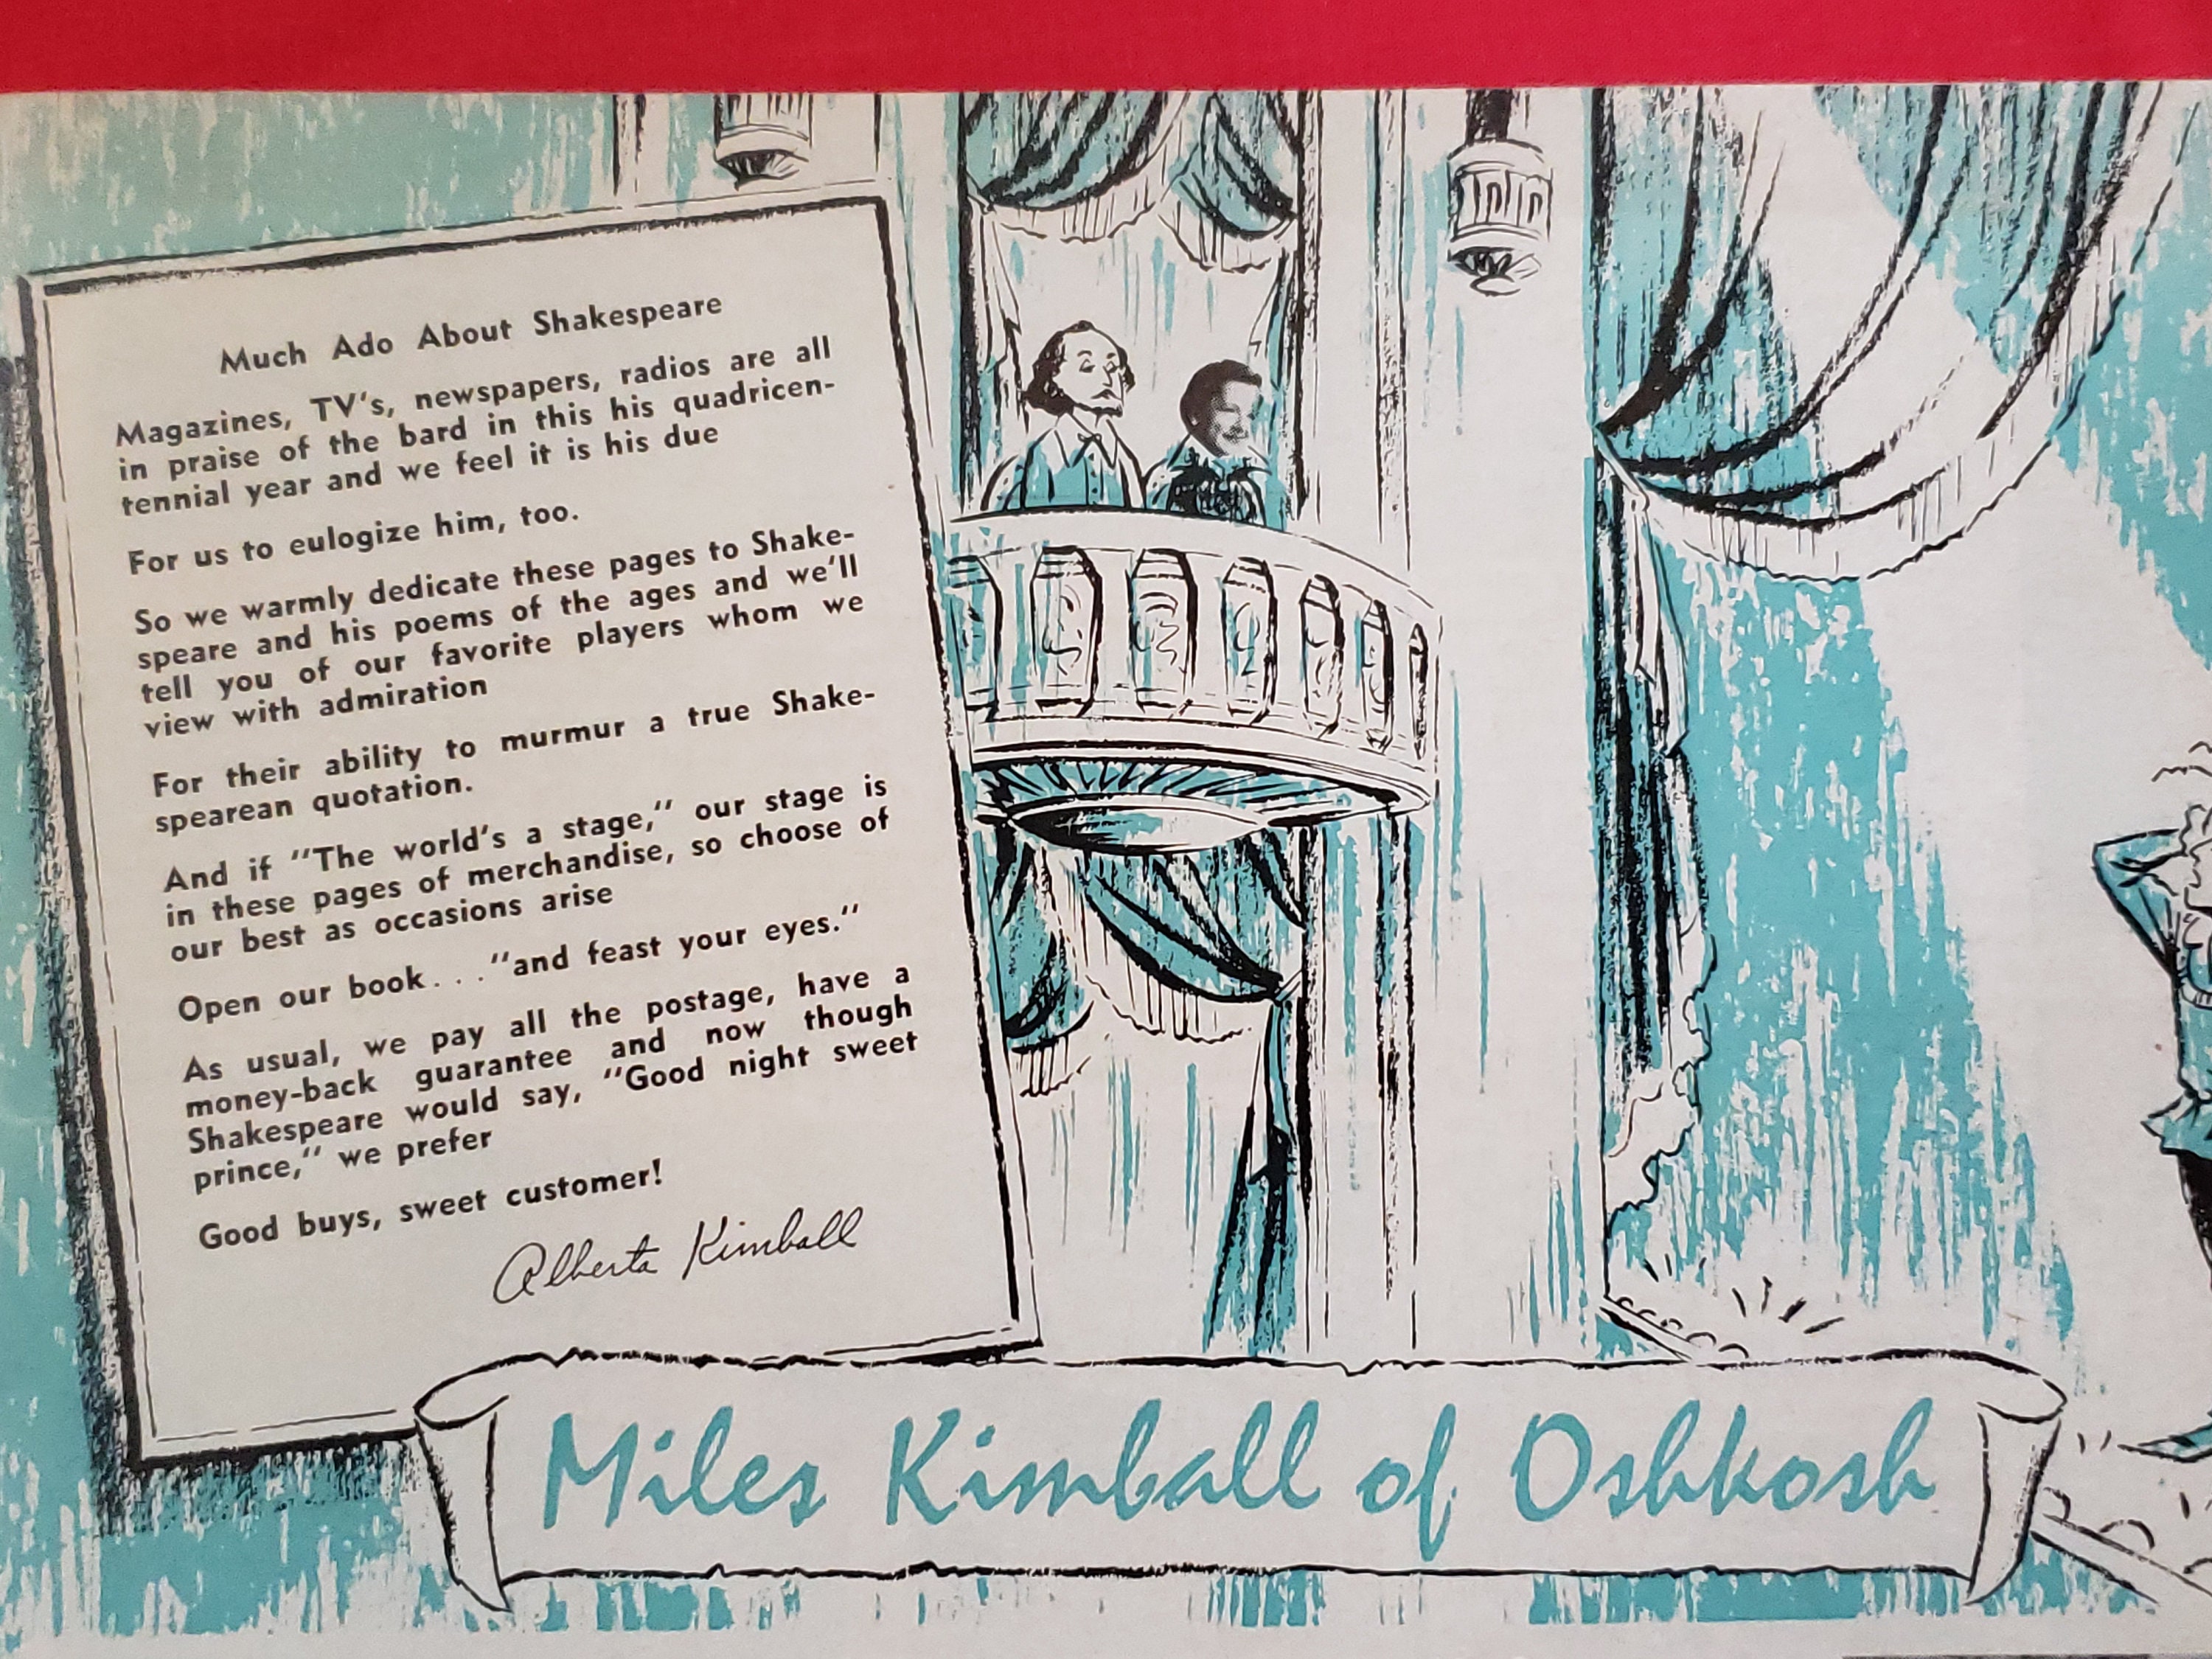 Much Ado About Shakespeare
Magazines, TV's, newspapers, radios are all
in praise of the bard in this his quadricen-
tennial year and we feel it is his due
For us to eulogize him, too.
So we warmly dedicate these pages to Shake-
speare and his poems of the ages and we'll
tell you of our favorite players whom we
view with admiration
For their ability to murmur a true Shake-
spearean quotation.
And if "The world's a stage," our stage is
in these pages of merchandise, so choose of
our best as occasions arise
Open our book. . ."and feast your eyes."
As usual, we pay all the postage, have a
money-back guarantee and now though
Shakespeare would say, "Good night sweet
prince," we prefer
Good buys, sweet customer!
Alberta Kimball
Miles Kimball of Oshkosh